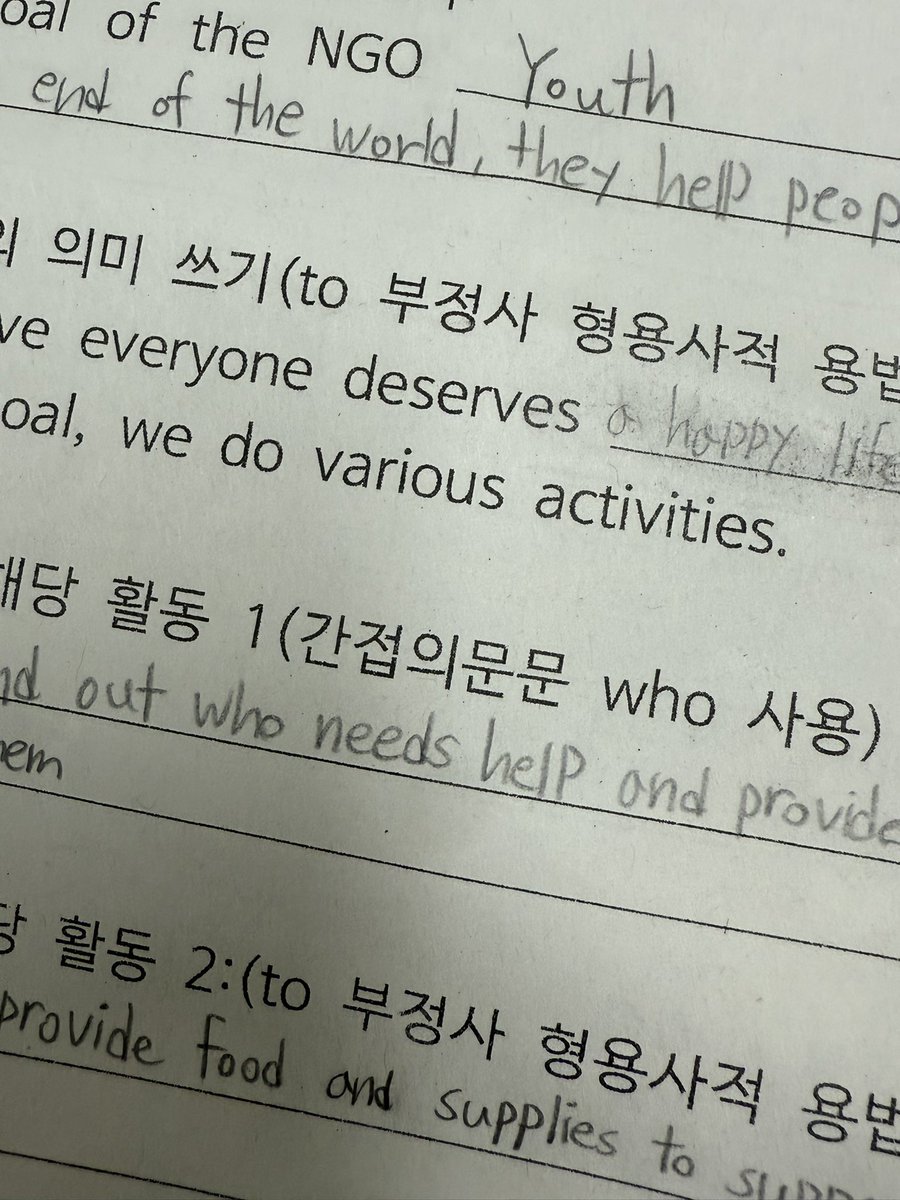 oal of the NGO Youth
end of the world, they help peop
의 의미 쓰기(to 부정사 형용사적 용법
ve everyone deserves a happy life
oal, we do various activities.
해당 활동 1(간접의문문 who 사용)
nd out who needs help and provide
hem
당 활동 2:(to 부정사 형용사적 용법
provide food and supplies to supp